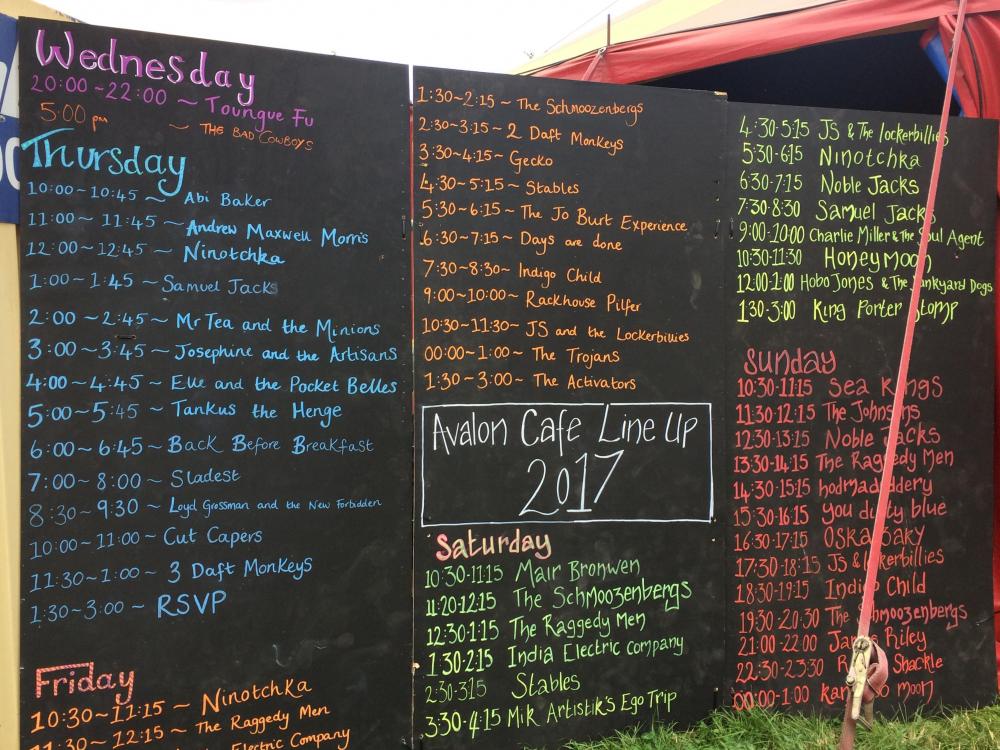 Wednesday
20:00~22:00 ~ Toungue Fu
5:00 pm ~ THE BAD COWBOYS
Thursday
10:00~10:45 ~ Abi Baker
11:00~ 11:45 ~ Andrew Maxwell Morris
12:00~12:45 ~ Ninotchka
1:00~1:45 ~ Samuel Jacks
2:00~2:45~ Mr Tea and the Minions
3:00~3:45~ Josephine and the Artisans
4:00~4:45~ Elle and the Pocket Belles
5:00~5:45 ~ Tankus the Henge
6:00~6:45 ~ Back Before Breakfast
7:00~8:00~ Sladest
8:30~9:30 ~ Loyd Grossman and the New Forbidden
10:00~11:00~ Cut Capers
11:30~1:00~ 3 Daft Monkeys
1:30~3:00~ RSVP
Friday
10:30~11:15 ~ Ninotchka
11:30~12:15 ~ The Raggedy Men
Electric Company
1:30~2:15~ The Schmoozenbergs
2:30~3:15~ 2 Daft Monkeys
3:30~4:15~ Gecko
4:30~5:15~ Stables
5:30~6:15~ The Jo Burt Experience
6:30~7:15~ Days are done
7:30~8:30~ Indigo Child
9:00~10:00~ Rackhouse Pilfer
10:30~11:30~ JS and the Lockerbillies
00:00~1:00~ The Trojans
1:30~3:00~ The Activators
Avalon Cafe Line Up
2017
Saturday
10:30-11:15 Mair Bronwen
11:20-12:15 The Schmoozenbergs
12:30-1:15 The Raggedy Men
1:30-2:15 India Electric company
2:30-3:15 Stables
3:30-4:15 Mik Artistik's Ego Trip
4:30-5:15 JS & The lockerbillies
5:30-6:15 Ninotchka
6:30-7:15 Noble Jacks
7:30-8:30 Samuel Jacks
9:00-10:00 Charlie Miller & The Soul Agent
10:30-11:30 Honeymoon
12:00-1:00 Hobo Jones & The Junkyard Dogs
1:30-3:00 King Porter Stomp
Sunday
10:30-11:15 Sea Kings
11:30-12:15 The Johnsons
12:30-13:15 Noble Jacks
13:30-14:15 The Raggedy Men
14:30-15:15 hodmadoddery
15:30-16:15 you dirty blue
16:30-17:15 Oska Baky
17:30-18:15 JS & Lockerbillies
18:30-19:15 Indigo Child
19:30-20:30 The Schmoozenbergs
21:00-22:00 James Riley
22:30-23:30 Shackle
00:00-1:00 moon